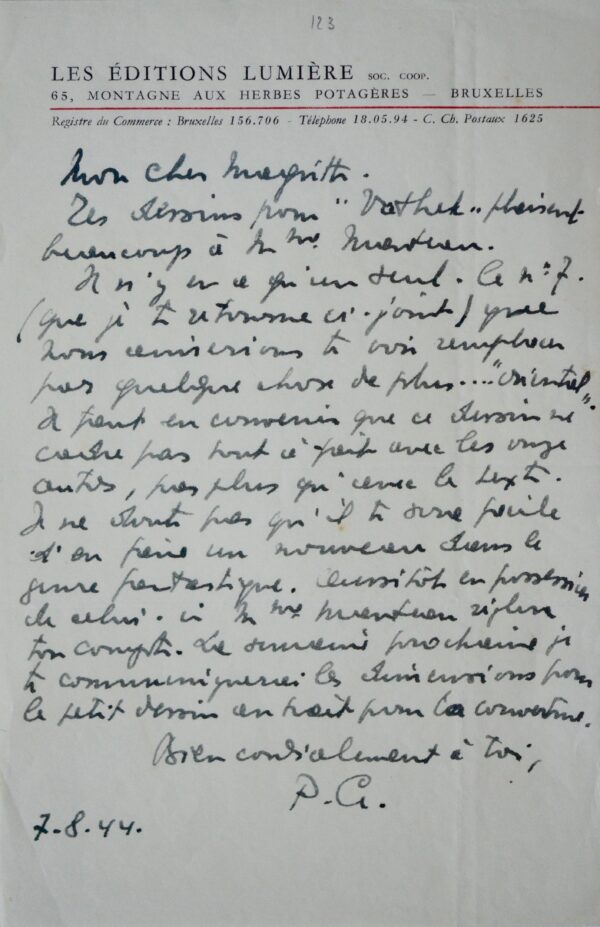 123
LES ÉDITIONS LUMIÈRE SOC. COOP.
65, MONTAGNE AUX HERBES POTAGÈRES — BRUXELLES
Registre du Commerce : Bruxelles 156.706 - Téléphone 18.05.94 - C. Ch. Postaux 1625
Mon cher Magritte.
Tes dessins pour "Vathek" plaisent
beaucoup à Mme Manteau.
Il n'y en a qu'un seul. le n° 7.
(que je te retourne ci-joint) que
nous aimerions te voir remplacer
par quelque chose de plus...."oriental".
Il faut en convenir que ce dessin ne
cadre pas tout à fait avec les onze
autres, pas plus qu'avec le texte.
Je ne doute pas qu'il te sera facile
d'en faire un nouveau dans le
genre fantastique. Aussitôt en possession
de celui-ci Mme Manteau réglera
ton compte. La semaine prochaine je
te communiquerai les dimensions pour
le petit dessin au trait pour la couverture.
Bien cordialement à toi,
P. G.
7-8-44.